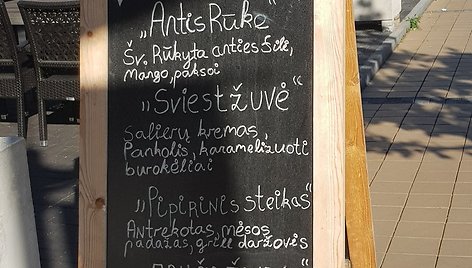 „Antis Rūke"
Šv. Rūkyta anties filė,
Mango, paksoi
„Sviestžuvė"
Salierų kremas,
Pankolis, karamelizuoti
burokėliai
„Pipirinis steikas"
Antrekotas, mėsos
padažas, grill daržovės